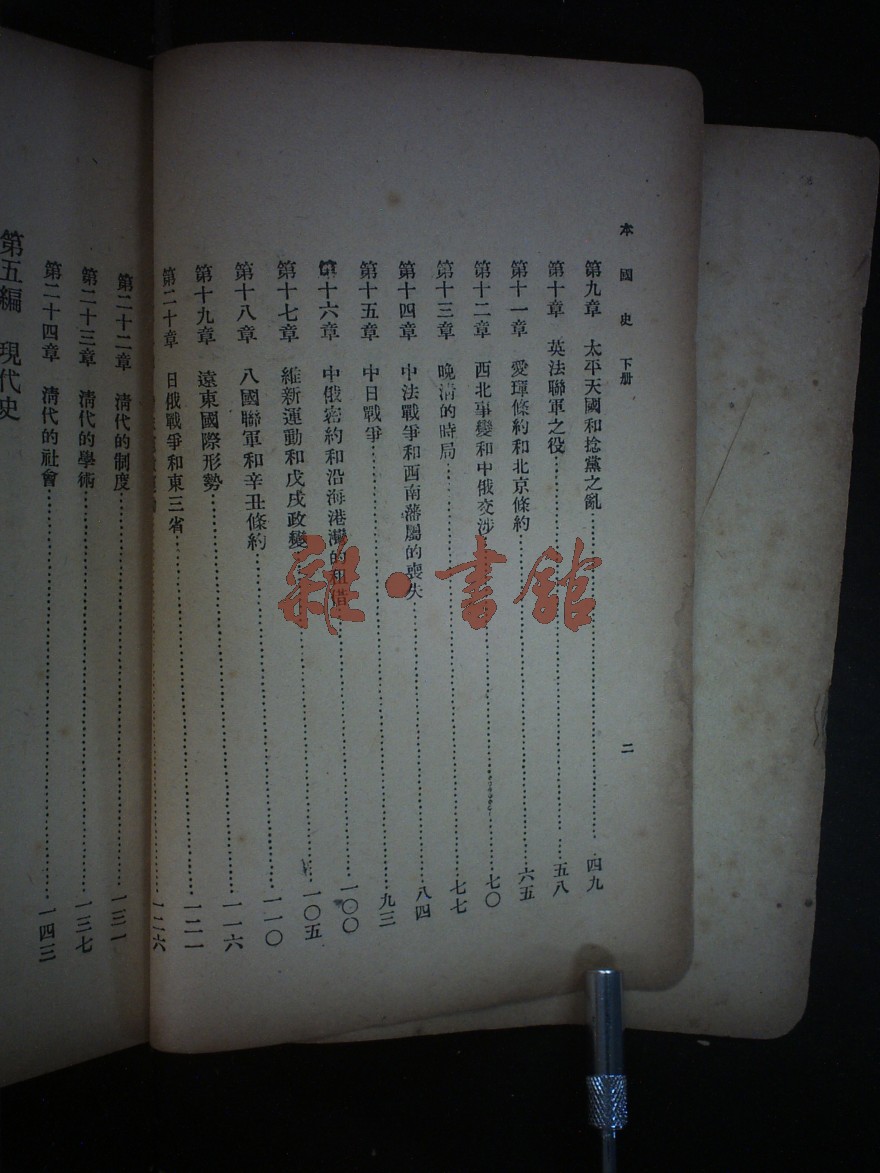 本國史 下册
二
第九章 太平天國和捻黨之亂 四九
第十章 英法聯軍之役 五八
第十一章 愛琿條約和北京條約 六五
第十二章 西北事變和中俄交涉 七〇
第十三章 晚清的時局 七七
第十四章 中法戰爭和西南藩屬的喪失 八四
第十五章 中日戰爭 九三
第十六章 中俄密約和沿海港灣的租借 一〇〇
第十七章 維新運動和戊戌政變 一〇五
第十八章 八國聯軍和辛丑條約 一一〇
第十九章 遠東國際形勢 一一六
第二十章 日俄戰爭和東三省 一二一
一二六
第二十二章 清代的制度 一三一
第二十三章 清代的學術 一三七
第二十四章 清代的社會 一四三
第五編 現代史
雜·書館